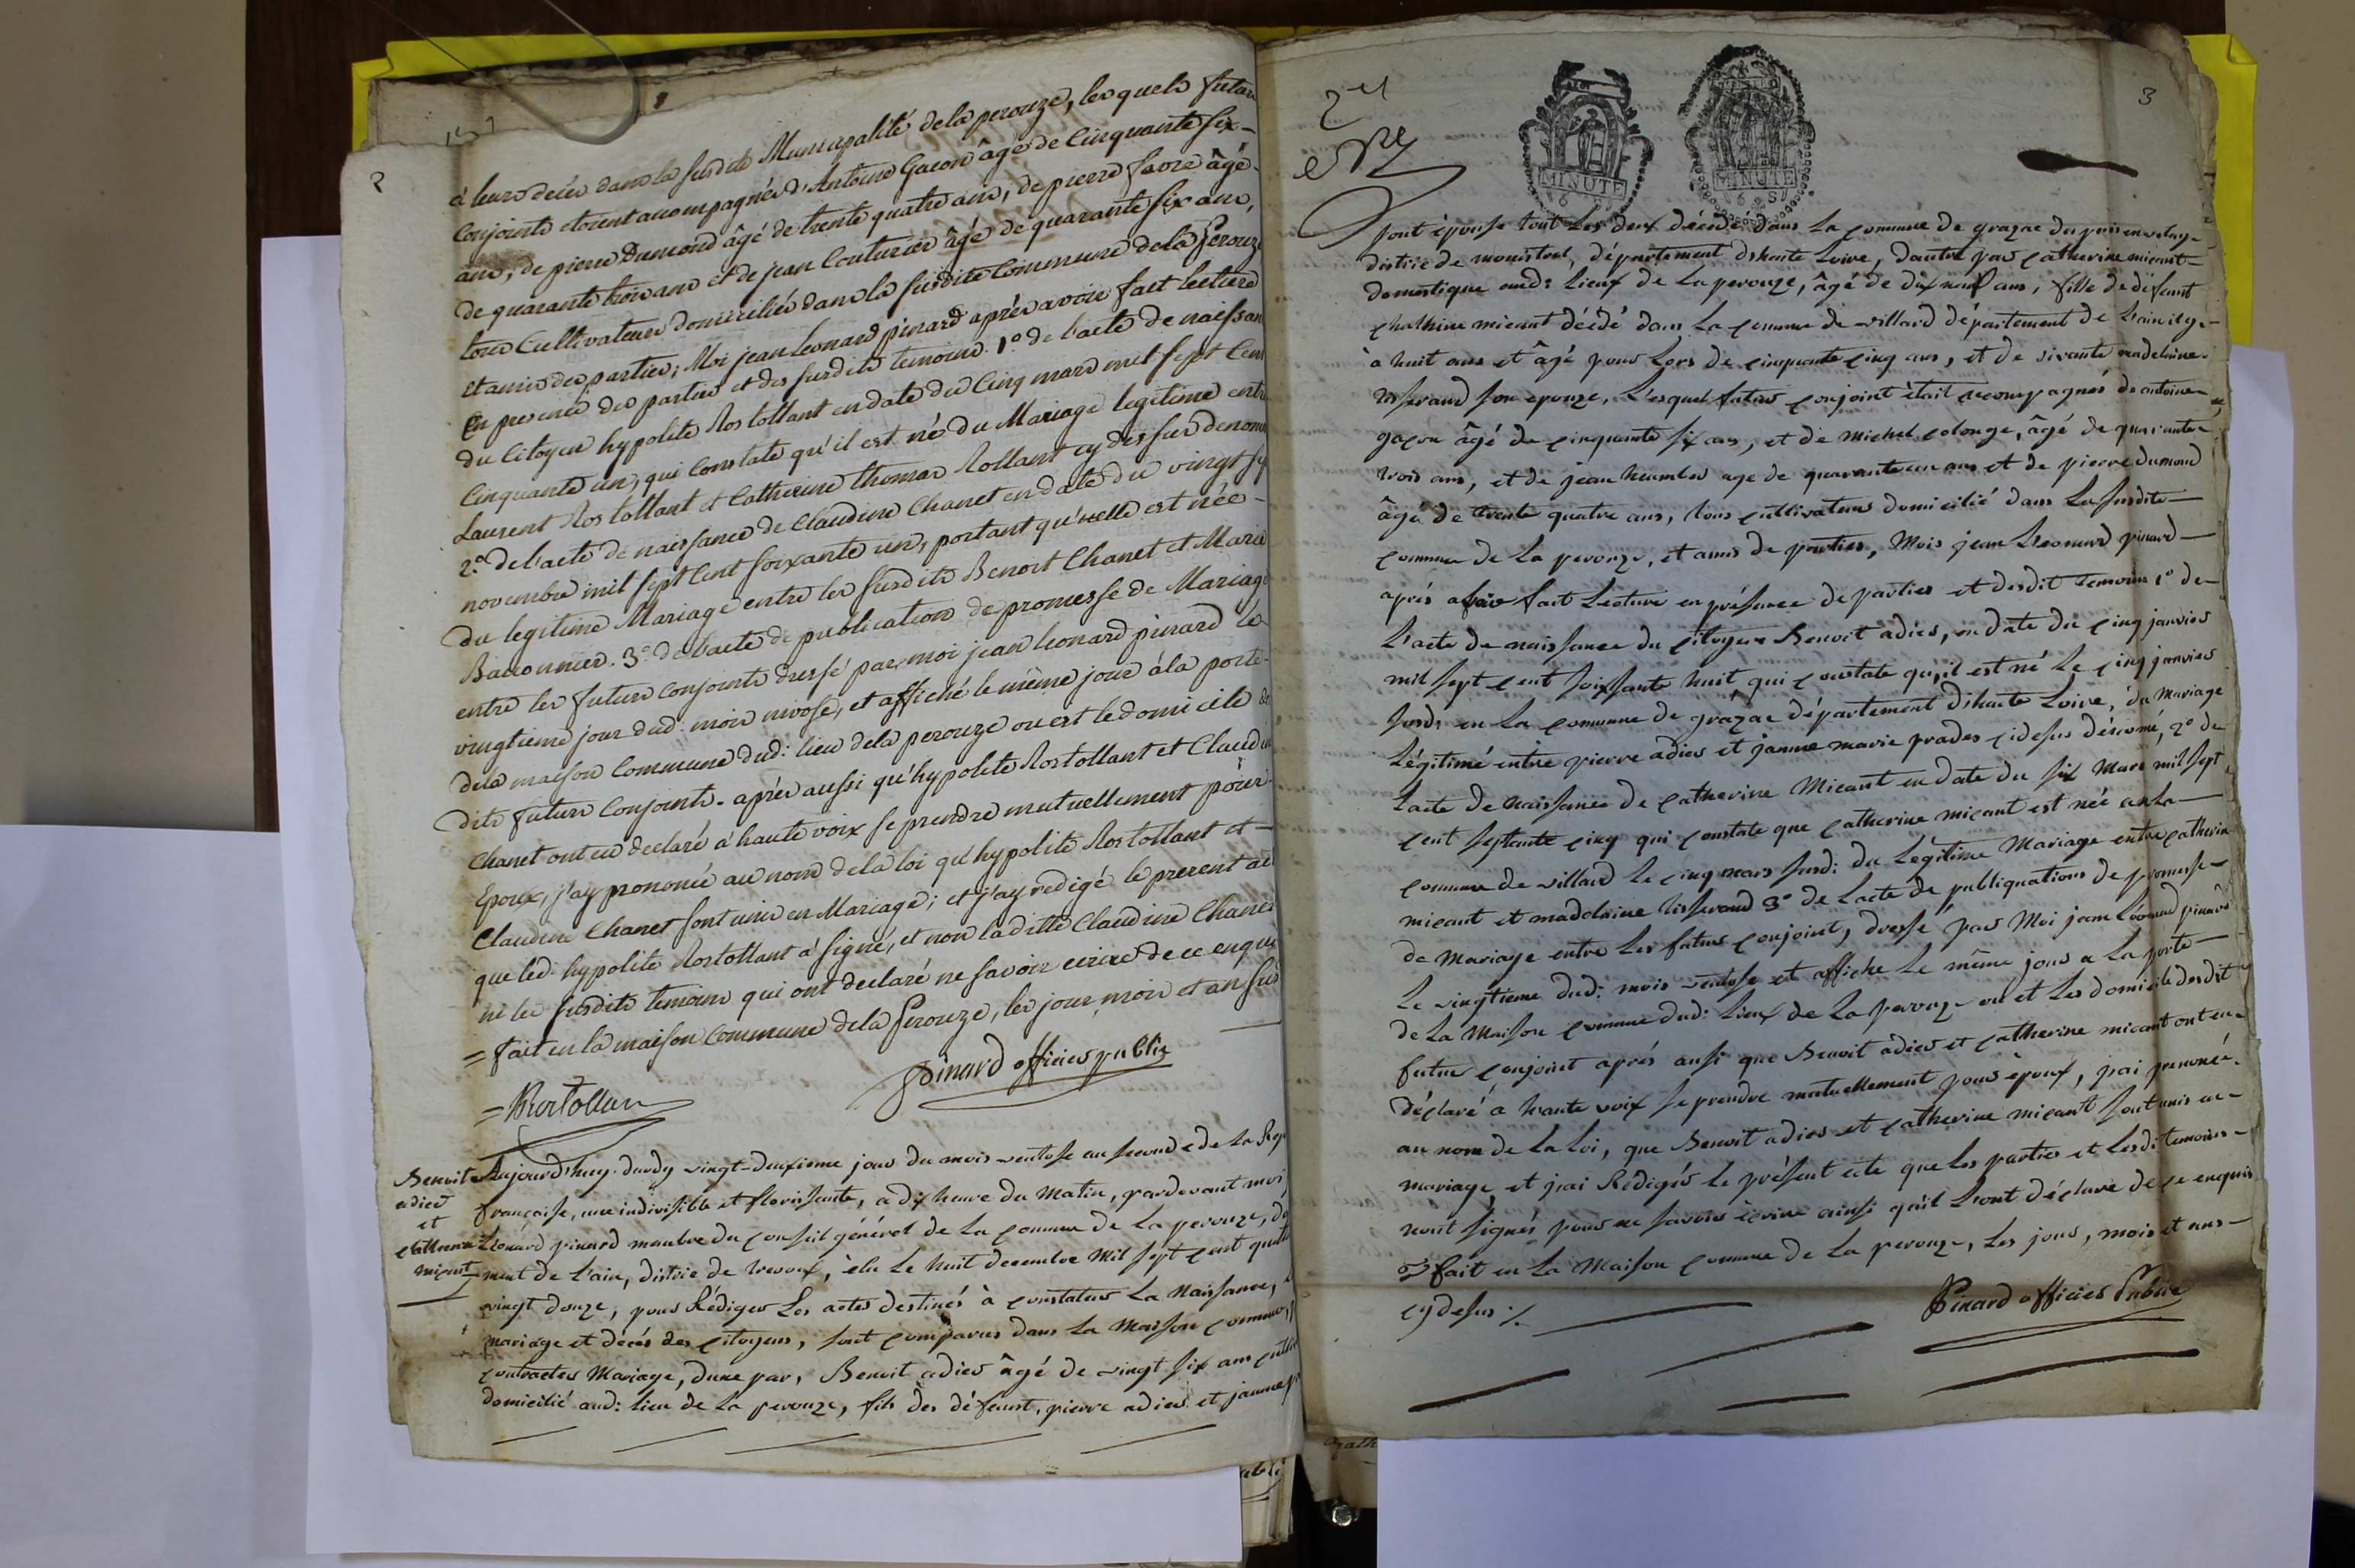 2
à leurs décès dans la susdite Municipalité de la perouze, lesquels futurs
Conjoints etoient accompagnés d'Antoine Gacon âgé de Cinquante six-
ans, de pierre Dumond âgé de trente quatre ans, de pierre favre âgé-
de quarante trois ans et de jean Couturier âgé de quarante six ans,
tous Cultivateurs domiciliés dans la susdite Commune de la Perouze
et amis des parties; Moi jean Leonard pinard après avoir fait lecture
En presence des parties et des susdits temoins 1.º de l'acte de naissan
du Citoyen hypolite Rostollant en date du Cinq mars mil sept Cent
Cinquante un, qui Constate qu'il est né du Mariage legitime entre
Laurent Rostollant et Catherine thomas Rollant cy dessus denom
2.º de l'acte de naissance de Claudine Chanet en date du vingt
novembre mil sept Cent soixante un, portant qu'elle est née-
du legitime Mariage entre les susdits Benoit Chanet et Marie
Baconnier. 3.º de l'acte de publication de promesse de Mariage
entre les futurs Conjoints dressé par moi jean leonard pinard le
vingtieme jour dud: mois nivose, et affiché le même jour à la porte-
de la maison Commune dud: lieu de la perouze ou est le domicile de
dits futurs Conjoints. après aussi qu'hypolite Rostollant et Claudi
Chanet ont eu declaré à haute voix se prendre mutuellement pour
Epoux, j'ay prononcé au nom de la loi qu'hypolite Rostollant et-
Claudine Chanet sont unis en Mariage; et j'ay redigé le present ac
que led: hypolite Rostollant à signé, et non laditte Claudine Chanet
ni les susdits temoins qui ont declaré ne savoir ecrire de ce enquis
= fait en la maison Commune de la Perouze, les jour, mois et an sus
= Rostollan
Pinard officier public
Benoit
adier
et
catherine
micant
Aujourd'huy duody vingt-deuxieme jour du mois ventose an second de La Rep
française, une indivisible et florissante, a dix heure du Matin, pardevant moi
Léonard pinard membre du Conseil général de La Commune de La perouze, dé
ment de L'ain, distric de trevoux, èlu Le huit decembre Mil sept Cent quatre
vingt douze, pour Rédiger Les actes destinés à constater La Naissance,
mariage et décés des citoyens, sont comparus dans La Maison commune,
contracter Mariage, dune par, Benoit adier âgé de vingt six ans culti
domicilié aud: Lieu de La perouze, fils des défeunt, pierre adier et janne
3
2 11
MINUTE
MINUTE
pont èpouse tout Les deux décédé dans La commune de grazac du puis en velay-
distric de monistrol, département dhaute Loire, dautre par catherine micant-
domestique aud: Lieux de La perouze, âgé de dix neuf ans, fille de défeunt
micant décédé dans La commune de villard département de L'ain il y a-
à huit ans et âgé pour Lors de cinquante cinq ans, et de vivante madelaine-
tisserand son epouze, L'esquel futur conjoint était accompagnés de antoine-
gacon âgé de cinquante six ans, et de Michel colonge, âgé de quarante-
trois ans, et de jean humbert age de quarante un ans et de pierre dumond
âgé de trente quatre ans, tous cultivateurs domicilié dans La susdite-
commune de La perouze, et amis de parties, Mois jean Léonard pinard-
après afvoir fait Lecture en présence de parties et desdit temoins 1º de-
L'acte de naissance du citoyen Benoit adier, en date du cinq janvier
mil sept cent soixsante huit, qui constate qu,il est né Le cinq janvier
susd: en La commune de grazac département dhaute Loire, du Mariage
Légitimé entre pierre adier et janne marie prades cidesus dénomé, 2º de
L'acte de Naissance de catherine Micant en date du six Mars mil sept
cent septante cinq qui constate que catherine micant est née en La-
commune de villard Le cinq mars susd: du Légitime Mariage entre catherin
micant et madelaine tisserand 3º de L'acte de publiquations de promesse-
de Mariage entre Les futur conjoint, dresse par Moi jean Léonard pinard
Le vingtieme dud: mois ventose et affiche Le même jour a La porte-
de La Maison commune dud: Lieux de La perouze ou et Les domicile desdit
futur conjoint aprés ausi que Benoit adier et catherine micant ont eu-
déclaré à haute voix se prendre mutuellement pour èpoux, jai prononcé-
au nom de La Loi, que Benoit adier et catherine micant sont unis en-
mariage, et jai Rédigér Le présent acte que Les parties et Lesdit temoins-
nont signés pour ne savoir ècrire ainsi quil L'ont déclare de ce enquis
fait en La Maison commune de La perouze, Les jour, mois et ans-
cy desus ./.
Pinard officier Public